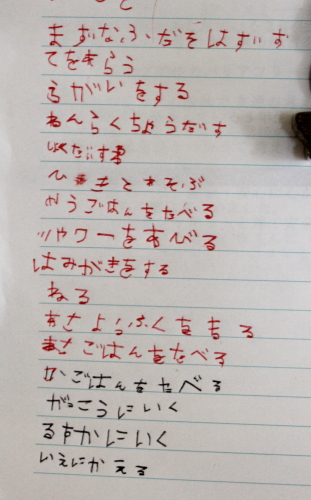 まずなふだをはずす
てをあらう
うがいをする
れんらくちょうだす
しゅくだいする
とあそぶ
ゆうごはんをたべる
シャワーをあびる
はみがきをする
ねる
あさようふくをきる
あさごはんをたべる
ごはんをたべる
がっこうにいく
るすかにいく
いえにかえる